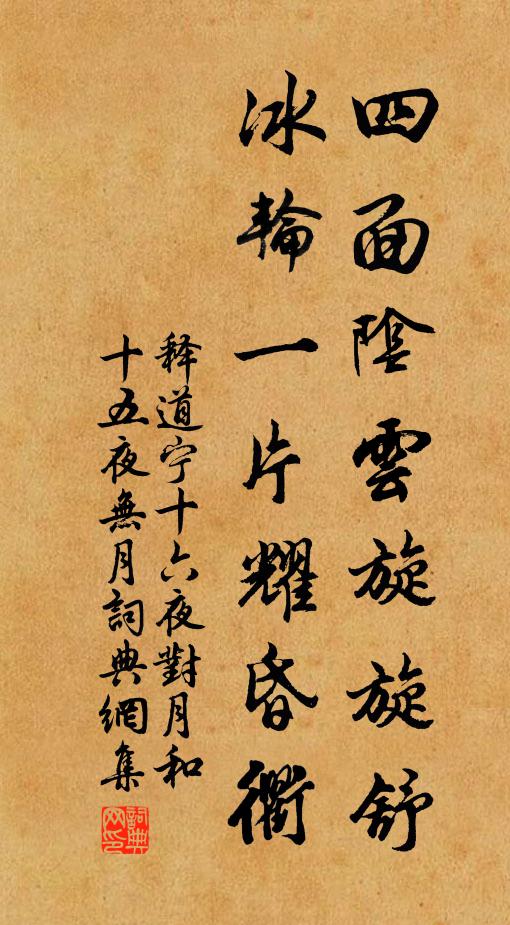 四面陰雲旋旋舒
冰輪一片耀昏衢
释道宁十六夜對月和
十五夜無月詞典網集
詞典网印